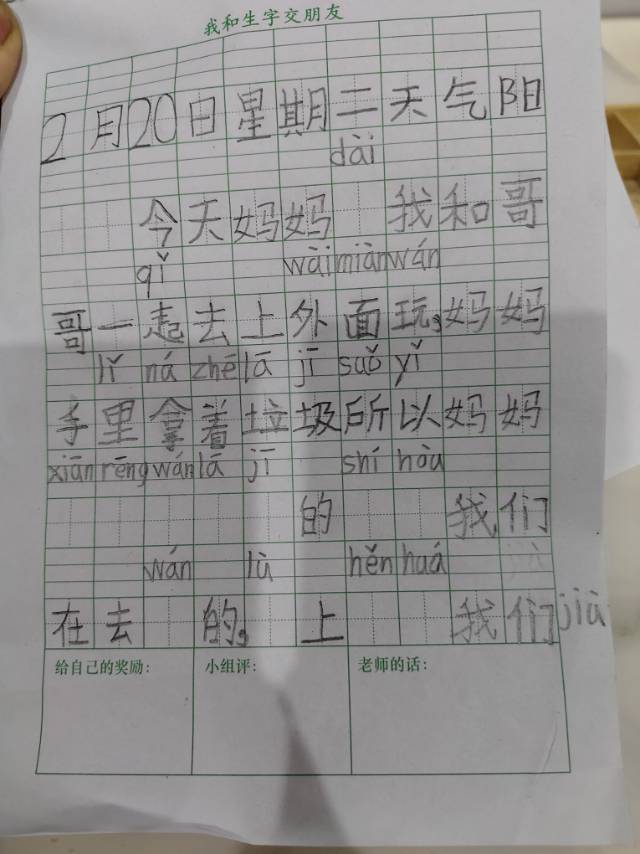 我和生字交朋友
2月20日星期二天气阳
dài
今天妈妈 我和哥
qǐ wàimiànwán
哥一起去上外面玩,妈妈
lǐ ná zhē lā jī suǒ yǐ
手里拿着垃圾所以妈妈
xiān rēng wán lá jī shí hòu
的 我们
wán lù hěn huá
在去 的,上 我们jiù
给自己的奖励: 小组评: 老师的话: